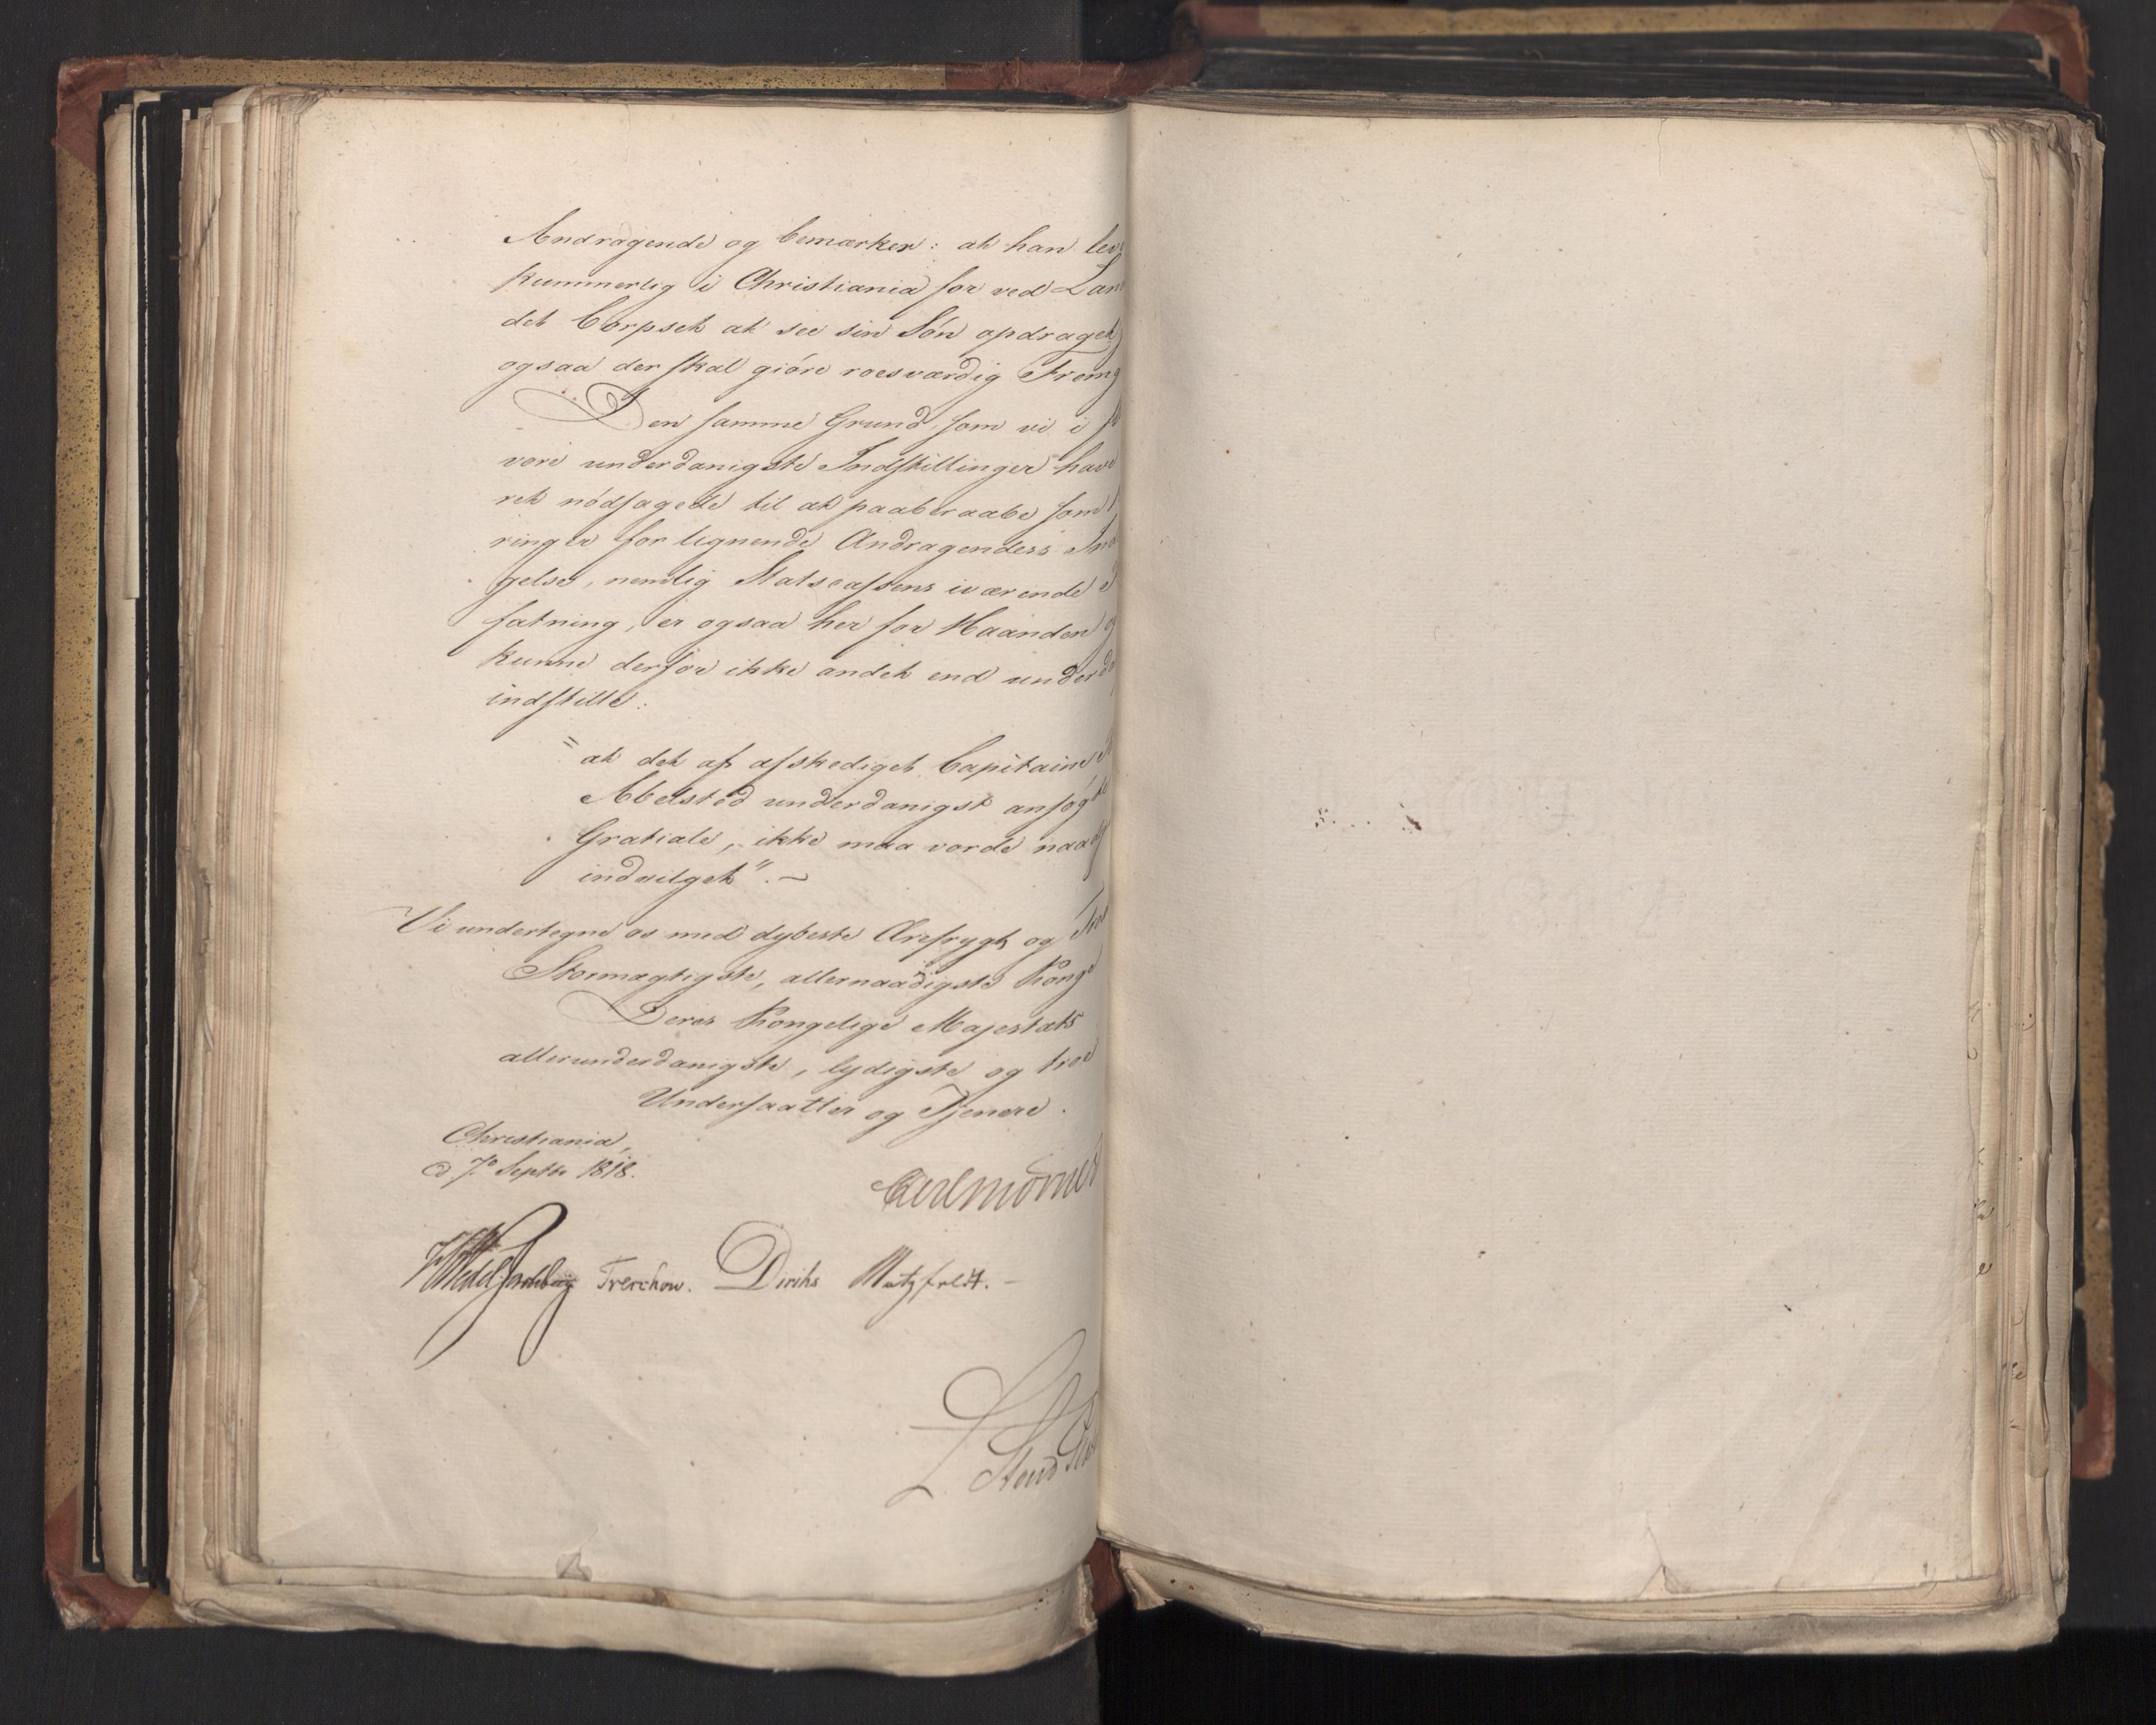 Andragende og bemærker: at han lev
kummerlig i Christiania for ved Lan
det Corpset at see sin Søn opdraget,
ogsaa der skal giøre roesværdig Fremg
Den samme Grund, som vi i
vore underdanigste Indstillinger have
ret nødsagede til at paaberaabe som
ringer for lignende Andragenders Ind
gelse, nemlig Statscassens iværende
fatning, er ogsaa her for Haanden og
kunne derfor ikke andet end underda
indstille:
"at det af afskediget Capitaine
Abelsted underdanigst ansøgte
Gratiale, ikke maa vorde naad
indvilget". -
Vi undertegne os med dybeste Ærefrygt og Tros
Stormægtigste, allernaadigste Konge
Deres Kongelige Majestæts
allerunderdanigste, lydigste og troe
Undersaatter og Tjenere.
Christiania,
d 7de Septbr 1818.
Carl Mörner
HWedel Jarlsberg Treschow. Diriks Motzfeldt. -
L.